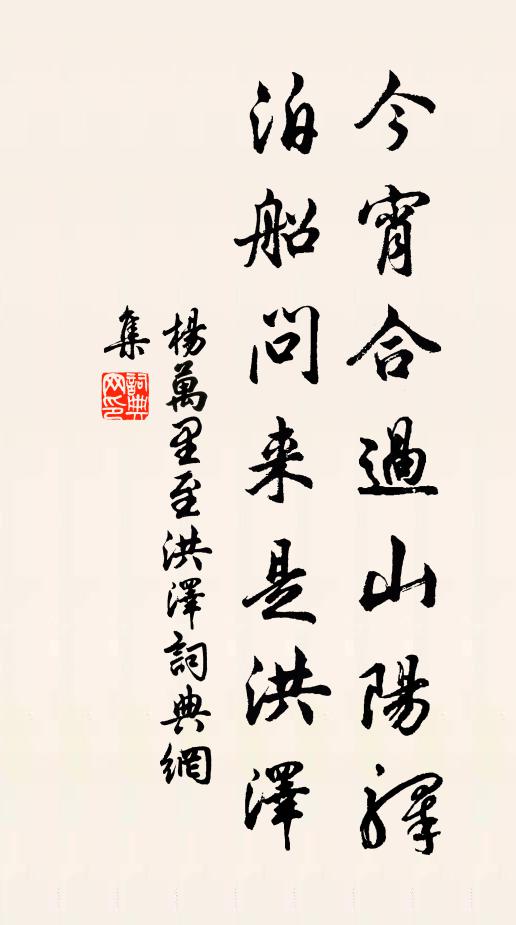 今宵合過山陽驛
泊船問来是洪澤
楊萬里至洪澤詞典網
集
詞典
网印